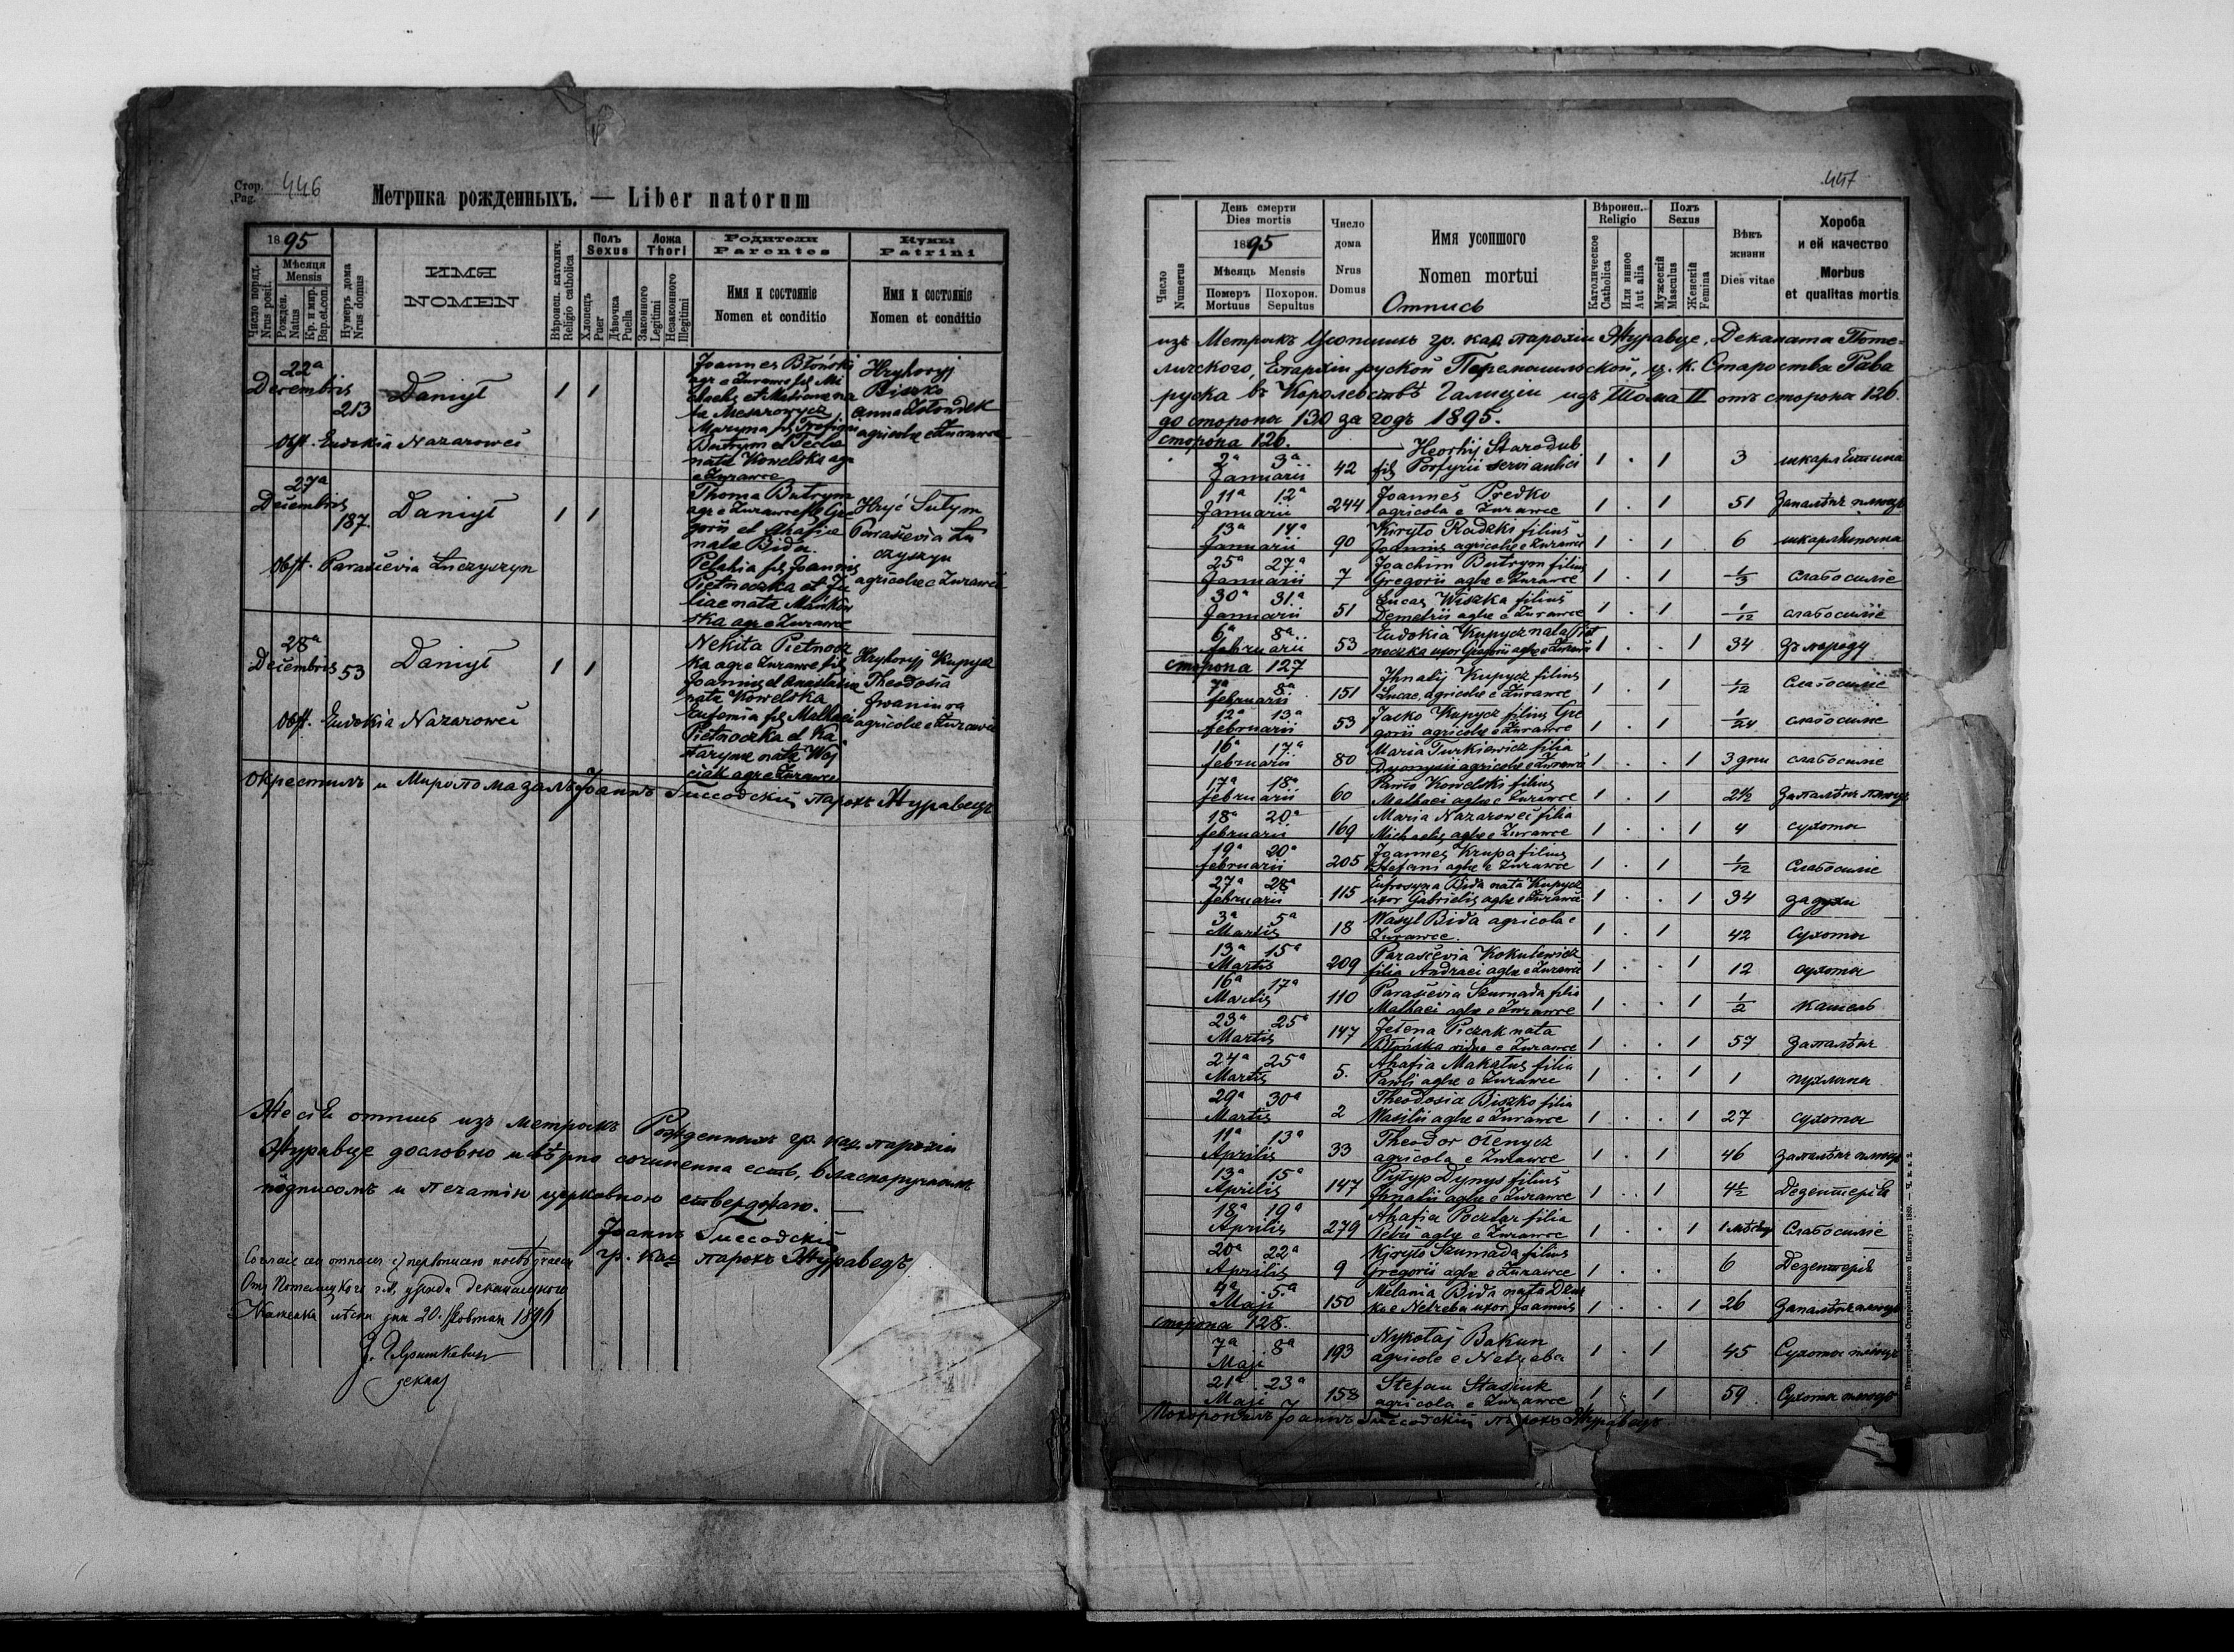 Стор.
Pag. 446
Метрика рожденныхъ. — Liber natorum
1895
Число поряд.
Nrus posit.
Мѣсяця
Mensis
Рожден.
Natus
Кр. и мир.
Bap. et con.
Нумеръ дома
Nrus domus
ИМЯ
NOMEN
Вѣроисп. католич.
Religio catholica
Полъ
Sexus
Хлопецъ
Puer
Дѣвочка
Puella
Ложа
Thori
Законного
Legitimi
Незаконного
Illegitimi
Родители
Parentes
Имя и состоянiе
Nomen et conditio
Кумы
Patrini
Имя и состоянiе
Nomen et conditio
22ª
Decembris
213
Daniył
1 1
Joannes Błoński
agr e Żurawce fil Mi
chaelis et Matrona na
ta
Maryna fil
Butrym et Tecla
nata Kowelska agr
e Żurawce
Hryhoryj
Biszko
Anna Żołondek
agricolae e Żurawce
Obst. Eudokia Nazaroweć
27ª
Decembris
187
Daniył
1 1
Thoma Butrym
agr e Żurawce fil Gre
gorii et Ahafia
nata Bida.
Pelahia fil Joannis
Pietnoczka et Ju
liae nata
ska agr e Żurawce
Hryć Sutym
Paraścevia Łu
czyszyn
agricolae e Żurawce
Obst. Paraścevia Łuczyszyn
28ª
Decembris 53
Daniył
1 1
Nekita Pietnocz
ka agr e Żurawce fil
Joannis et Anastasiae
nata Kowelska
Eufemia fil Mathaei
Pietnoczka et Ka
taryna nata Woj
ciak agr e Żurawce
Hryhoryj Kupycz
Theodosia
Iwaniura
agricolae e Żurawce
Obst. Eudokia Nazaroweć
Окрестилъ и Миропомазалъ Іоаннъ парохъ Журавецъ
отпись изъ метрикъ Рожденныхъ гр. кат. парохiи
Журавце дословно и вѣрно сочиненна есть, власноручнымъ
подписомъ и печатiю церковною ствержаю.
Іоаннъ
гр. кат. парохъ Журавецъ
447
Число
Numerus
День смерти
Dies mortis
1895
Мѣсяць Mensis
Померъ
Mortuus
Похорон.
Sepultus
Число
дома
Nrus
Domus
Имя усопшого
Nomen mortui
Отпись
Вѣроисп.
Religio
Католическое
Catholica
Или инное
Aut alia
Полъ
Sexus
Мужескій
Masculus
Женскій
Femina
Вѣкъ
жизни
Dies vitae
Хороба
и ей качество
Morbus
et qualitas mortis
изъ Метрикъ Усопшихъ гр. кат. парохiи Журавце, Деканата Поте-
личского, Епархiи руской Перемышльской, ц. к. Староства Рава
руска въ Королевствѣ Галицiи изъ Тома II отъ сторона 126
до сторона 130 за годъ 1895.
сторона 126.
2ª 3ª Januarii 42 Heorhij Starodub
fil Porfyrii servi aulici 1 . 1 3 шкарлятина
11ª 12ª Januarii 244 Joannes Predko
agricola e Żurawce 1 . 1 51 Запалѣнie плюцъ
13ª 14ª Januarii 90 Kiryło Radzki filius
Joannis agricolae e Żurawce 1 . 1 6 шкарлятина
25ª 27ª Januarii 7 Joachim Butrym filius
Gregorii agrae e Żurawce 1 . 1 1/3 слабосилiе
30ª 31ª Januarii 51 Lucas Wiszka filius
Demetrii agrae e Żurawce 1 . 1 1/12 слабосилiе
6ª 8ª februarii 53 Eudokia Kupycz nata Piet
noczka uxor Gregorii agrae e Żurawce 1 . . 1 34 зъ породу
сторона 127
7ª 8ª februarii 151 Ihnatij Kupycz filius
Lucae, agricolae e Żurawce 1 . 1 1/12 Слабосилiе
12ª 13ª februarii 53 Jacko Kupycz filius Gre
gorii agricolae e Żurawce 1 . 1 1/24 слабосилiе
16ª 17ª februarii 80 Maria Turkiewicz filia
Dyonysii agricolae e Żurawce 1 . . 1 3 дни слабосилiе
17ª 18ª februarii 60 Pawło Kowelski filius
Mathaei agrae e Żurawce 1 . 1 2½ Запалѣнie плюцъ
18ª 20ª februarii 169 Maria Nazaroweć filia
Michaelis agrae e Żurawce 1 . . 1 4 сухоты
19ª 20ª februarii 205 Joannes Krupa filius
Stefani agrae e Żurawce 1 . 1 1/12 Слабосилiе
27ª 28ª februarii 115 Eufrosyna Bida nata Kupycz
uxor Gabrielis agrae e Żurawce 1 . . 1 34 задухи
3ª 5ª Martis 18 Wasyl Bida agricola e
Żurawce. 1 . 1 42 сухоты
13ª 15ª Martis 209 Paraścevia Kokulewicz
filia Andraei agrae e Żurawce 1 . . 1 12 сухоты
16ª 17ª Martis 110 Paraścevia Szumada filia
Mathaei agrae e Żurawce 1 . . 1 1/2 кашель
23ª 25ª Martis 147 Jełena Piczak nata
Błońska vidua e Żurawce 1 . . 1 57 запалѣнie
24ª 25ª Martis 5. Ahafia Makatus filia
Pawli agrae e Żurawce 1 . . 1 1 пухлина
29ª 30ª Martis 2 Theodosia Biszko filia
Wasilii agrae e Żurawce 1 . . 1 27 сухоты
11ª 13ª Aprilis 33 Theodor Ołenycz
agricola e Żurawce 1 . 1 46 запалѣнie плюцъ
13ª 15ª Aprilis 147 Pyłyp Dynys filius
Ihnatii agrae e Żurawce 1 . 1 4½ Дезентерiя
18ª 19ª Aprilis 279 Ahafia Pocztar filia
Petri agrae e Żurawce 1 . . 1 Слабосилiе
20ª 22ª Aprilis 9 Kyryło Szumada filius
Gregorii agrae e Żurawce 1 . . 6 Дезентерiя
4ª 5ª Maji 150 Melania Bida nata
e Netreba uxor Joannis 1 . . 1 26 Запалѣнie плюцъ
сторона 128.
7ª 8ª Maji 193 Nykołaj Bakun
agricola e Netreba 1 . 1 45 Сухоты плюцъ
21ª 23ª Maji 158 Stefan Stasiuk
agricola e Żurawce 1 1 59 Сухоты плюцъ
Похоронилъ Іоаннъ парохъ Журавецъ